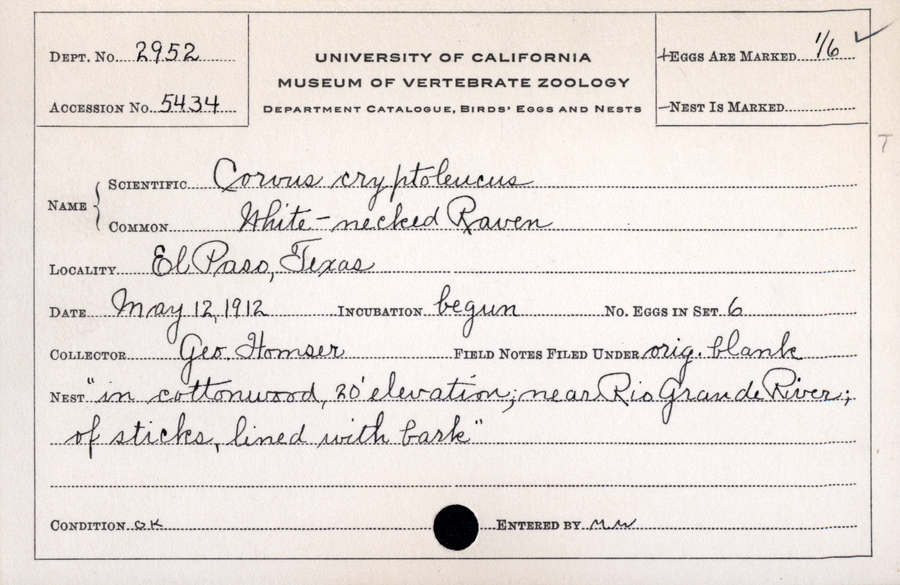 Dept. No. 2952
Accession No. 5434
UNIVERSITY OF CALIFORNIA
MUSEUM OF VERTEBRATE ZOOLOGY
Department Catalogue, Birds' Eggs and Nests
Eggs Are Marked 1/6 ✓
Nest Is Marked
Name { Scientific Corvus cryptoleucus
Common White-necked Raven
Locality El Paso, Texas
Date May 12, 1912 Incubation begun No. Eggs in Set 6
Collector Geo. Homser Field Notes Filed Under orig. blank
Nest "in cottonwood, 20' elevation; near Rio Grande River;
of sticks, lined with bark"
Condition OK Entered by